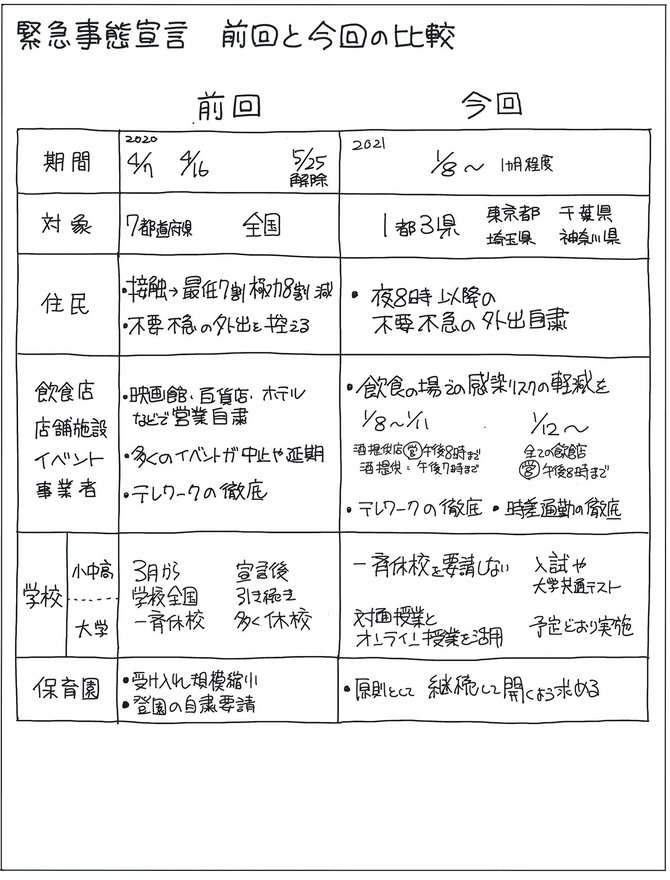 緊急事態宣言 前回と今回の比較
前回 今回
期間
2020
4/7 4/16 5/25
解除
2021
1/8〜 1ヵ月程度
対象
7都道府県 全国
1都3県
東京都 千葉県
埼玉県 神奈川県
住民
・接触→最低7割極力8割減
・不要不急の外出を控える
・夜8時以降の
不要不急の外出自粛
飲食店
店舗施設
イベント
事業者
・映画館・百貨店・ホテル
などで営業自粛
・多くのイベントが中止や延期
・テレワークの徹底
・飲食の場での感染リスクの軽減を
1/8〜1/11
酒提供店営午後8時まで
酒提供：午後7時まで
1/12〜
全ての飲食店
営午後8時まで
・テレワークの徹底 ・時差通勤の徹底
学校
小中高
大学
3月から
学校全国
一斉休校
宣言後
引き続き
多く休校
一斉休校を要請しない
入試や
大学共通テスト
対面授業と
オンライン授業を活用
予定どおり実施
保育園
・受け入れ規模縮小
・登園の自粛要請
・原則として 継続して開くよう求める